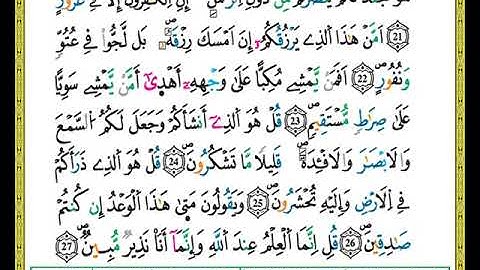 جند لكم ينصركم من دون الرحمن إن الكافرون إلا في غرور
(21) أَمَّنْ هَٰذَا الَّذِي يَرْزُقُكُمُ إِنْ أَمْسَكَ رِزْقَهُ بَل لَّجُّوا فِي عُتُوٍّ
وَنُفُورٍ (22) أَفَمَن يَمْشِي مُكِبًّا عَلَىٰ وَجْهِهِ أَهْدَىٰ أَمَّن يَمْشِي سَوِيًّا
عَلَىٰ صِرَاطٍ مُّسْتَقِيمٍ (23) قُلْ هُوَ الَّذِي أَنشَأَكُمْ وَجَعَلَ لَكُمُ السَّمْعَ
وَالَابْصَارَ وَالَافْئِدَةَ قَلِيلًا مَّا تَشْكُرُونَ (24) قُلْ هُوَ الَّذِي ذَرَأَكُمْ
فِي الَارْضِ وَإِلَيْهِ تُحْشَرُونَ (25) وَيَقُولُونَ مَتَىٰ هَٰذَا الْوَعْدُ إِن كُنتُمْ
صَادِقِينَ (26) قُلِ اِنَّمَا الْعِلْمُ عِندَ اللَّهِ وَإِنَّمَا أَنَا نَذِيرٌ مُّبِينٌ (27)